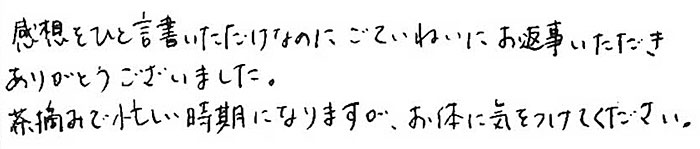 感想をひと言書いただけなのに ごていねいに お返事いただき
ありがとうございました。
茶摘みで忙しい時期になりますが、お体に気をつけてください。